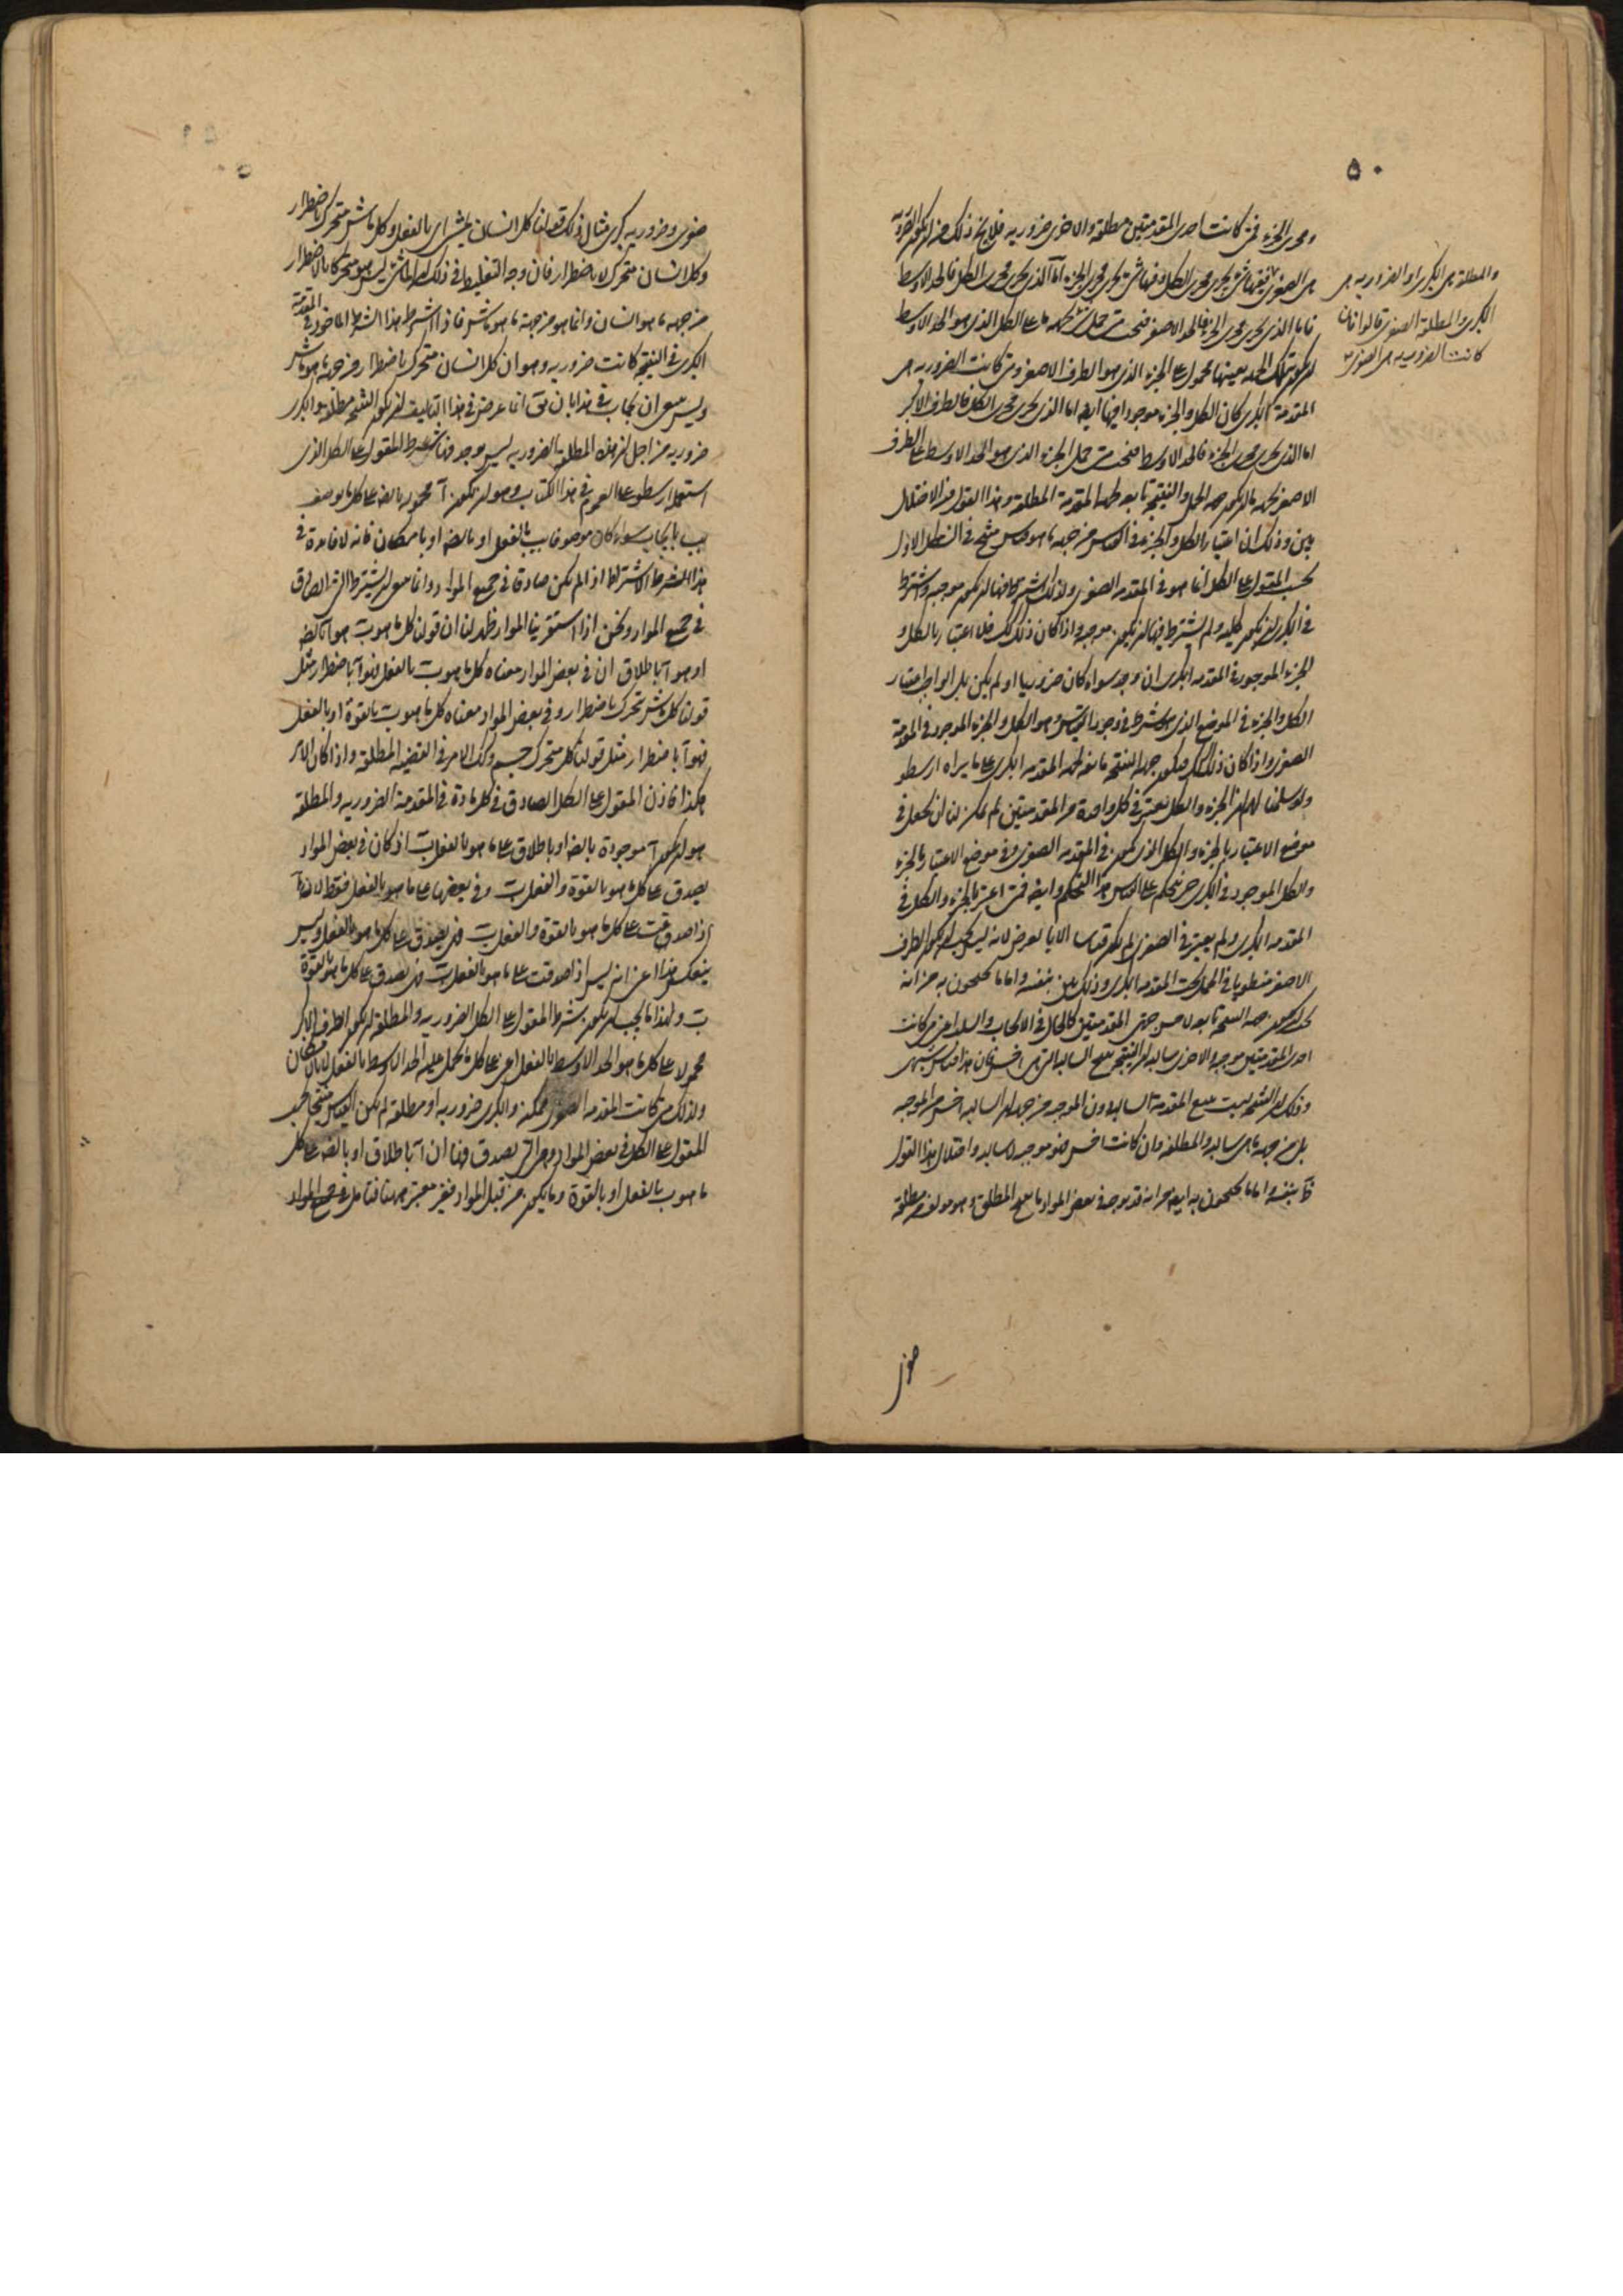 ٥٠
ومجرى الجزء فمتى كانت احدى المقدمتين مطلقة والاخرى ضرورية فلا يخ ذلك من ان يكون الضرورية
هى الصغرى ففيها شئ يجرى مجرى الكل وفيها شئ يجرى مجرى الجزء اما الذى يجرى مجرى الكل فالحد الاوسط
فاما الذى يجرى مجرى الجزء فالحد الاصغر فمتى حمل بجهة ما على الكل الذى هو الحد الاوسط
تلك الجهة بعينها محمول على الجزء الذى هو الطرف الاصغر ومتى كانت الضرورية هى
المقدمة الكبرى كان الكل والجزء موجودا فيها ايضا اما الذى يجرى مجرى الكل فالطرف الاكبر
اما الذى يجرى مجرى الجزء فالحد الاوسط فمتى حمل الجزء الذى هو الحد الاوسط على الطرف
الاصغر بجهة ما تكون جهة الحمل والنتيجة تابعة لجهة المقدمة المطلقة وهذا القول فيه الاختلال
بين وذلك ان اعتبار الكل والجزء فى القياس من جهة ما هو قياس منتج فى الشكل الاول
بحسب المقول على الكل انما هو فى المقدمة الصغرى ولذلك اشترط فيها ان يكون موجبة واشترط
فى الكبرى ان يكون كلية ولم يشترط فيها ان يكون موجبة واذا كان ذلك كذلك فلا اعتبار بالكل و
الجزء الموجود فى المقدمة الكبرى ان وجد سواء كان ضروريا او لم يكن بل الواجب اعتبار
الكل والجزء فى الموضع الذى هو شرط فى وجود القياس وهو الكل والجزء الموجود فى المقدمة
الصغرى واذا كان ذلك كذلك فيكون جهة النتيجة تابعة لجهة المقدمة الكبرى على ما يراه ارسطو
ولو سلمنا لهم ان الجزء والكل يعتبر فى كل واحدة من المقدمتين لم يمكن لنا ان نجعل فى
موضع الاعتبار بالجزء والكل الذى يكون فى المقدمة الصغرى وفى موضع الاعتبار بالجزء
والكل الموجود فى الكبرى حتى نحكم على القياس هذا التحكم وايضا فمتى اعتبر الجزء والكل فى
المقدمة الكبرى ولم يعتبر فى الصغرى لم يكن قياسا الا بالعرض لانه ليس يجب ان يكون الطرف
الاصغر منطويا فى الحمل تحت المقدمة الكبرى وذلك بين بنفسه واما ما يحتجون به من انه
يجب ان يكون جهة النتيجة تابعة لاخس جهتى المقدمتين كالحال فى الايجاب والسلب اعنى متى كانت
احدى المقدمتين موجبة والاخرى سالبة ان النتيجة تتبع السالبة التى هى اخس فان هذا قياس شبهى
وذلك ان النتيجة ليست تتبع المقدمة السالبة دون الموجبة من جهة ان السالبة اخس من الموجبة
بل من جهة ما هى سالبة والمطلقة وان كانت اخس فهو موجبة لا سالبة واختلال هذا القول
بنفسه واما ما يحتجون به ايضا من انه قد يوجد فى بعض المواد ما تتبع المطلقة وهو مولف من مطلقة
والمطلقة هى الكبرى او الضرورية هى
الكبرى والمطلقة الصغرى قالوا فان
كانت الضرورية هى الصغرى
صغرى
صغرى وضرورية كبرى مثال ذلك قولنا كل انسان يمشى اى بالفعل وكل ماش متحرك باضطرار
وكل انسان متحرك لا باضطرار فان وجه التغليط فى ذلك ان الماشى ليس هو متحركا بالاضطرار
من جهة ما هو انسان وانما هو من جهة ما هو ماش فاذا اشترط هذا الشرط الماخوذ فى المقدمة
الكبرى فى النتيجة كانت ضرورية وهو ان كل انسان متحرك باضطرار من جهة ما هو ماش
وليس ان يجاب فى هذا بان يق انما عرض فى هذا التاليف ان يكون النتيجة مطلقة والكبرى
ضرورية من اجل ان هذه المطلقة الضرورية ليس يوجد فيها شرط المقول على الكل الذى
استعمله ارسطو على العموم فى هذا الكتاب وهو ان يكون آ محمولا بالضرورة على كل ما يوصف
بب بايجاب سواء كان موصوفا بب بالفعل او بالضرورة او بامكان فانه لا فائدة فى
هذا الشرط الاشتراط اذ لم يكن صادقا فى جميع المواد وانما ان يشترط الشرط الصادق
فى جميع المواد ونحن اذا استقرينا المواد ظهر لنا ان قولنا كل ما هو ب هو آ بالضرورة
او هو آ باطلاق ان فى بعض المواد معناه كل ما هو ب بالفعل فهو آ باضطرار مثل
قولنا كل ماش متحرك باضطرار وفى بعض المواد معناه كل ما هو ب بالقوة او بالفعل
فهو آ باضطرار مثل قولنا كل متحرك جسم وكذا الامر فى القضية المطلقة واذا كان الامر
هكذا فاذن المقول على الكل الصادق فى كل مادة فى المقدمة الضرورية والمطلقة
هو ان يكون آ موجودة بالضرورة او باطلاق على ما هو بالفعل ب اذ كان فى بعض المواد
يصدق على كل ما هو بالقوة والفعل ب وفى بعضها على ما هو بالفعل فقط لان آ
اذا صدقت على كل ما هو بالقوة والفعل ب فهى يصدق على كل ما هو بالفعل وليس
ينعكس هذا اعنى انه ليس اذا صدقت على ما هو بالفعل ب فهى يصدق على كل ما هو بالقوة
ب ولهذا ما يجب ان يكون شرط المقول على الكل الضرورية والمطلقة ان يكون الطرف الاكبر
محمولا على كل ما هو الحد الاوسط بالفعل اعنى على كل ما يحمل عليه الحد الاوسط بالفعل لا بالامكان
ولذلك متى كانت المقدمة الصغرى ممكنة والكبرى ضرورية او مطلقة لم يكن القياس منتجا بحسب
المقول على الكل فى بعض المواد وهى التى يصدق فيها ان آ باطلاق او بالضرورة على كل
ما هو ب بالفعل او بالقوة وما يكون من قبل المواد فغير معتبر ههنا فتامل فى جميع المواد